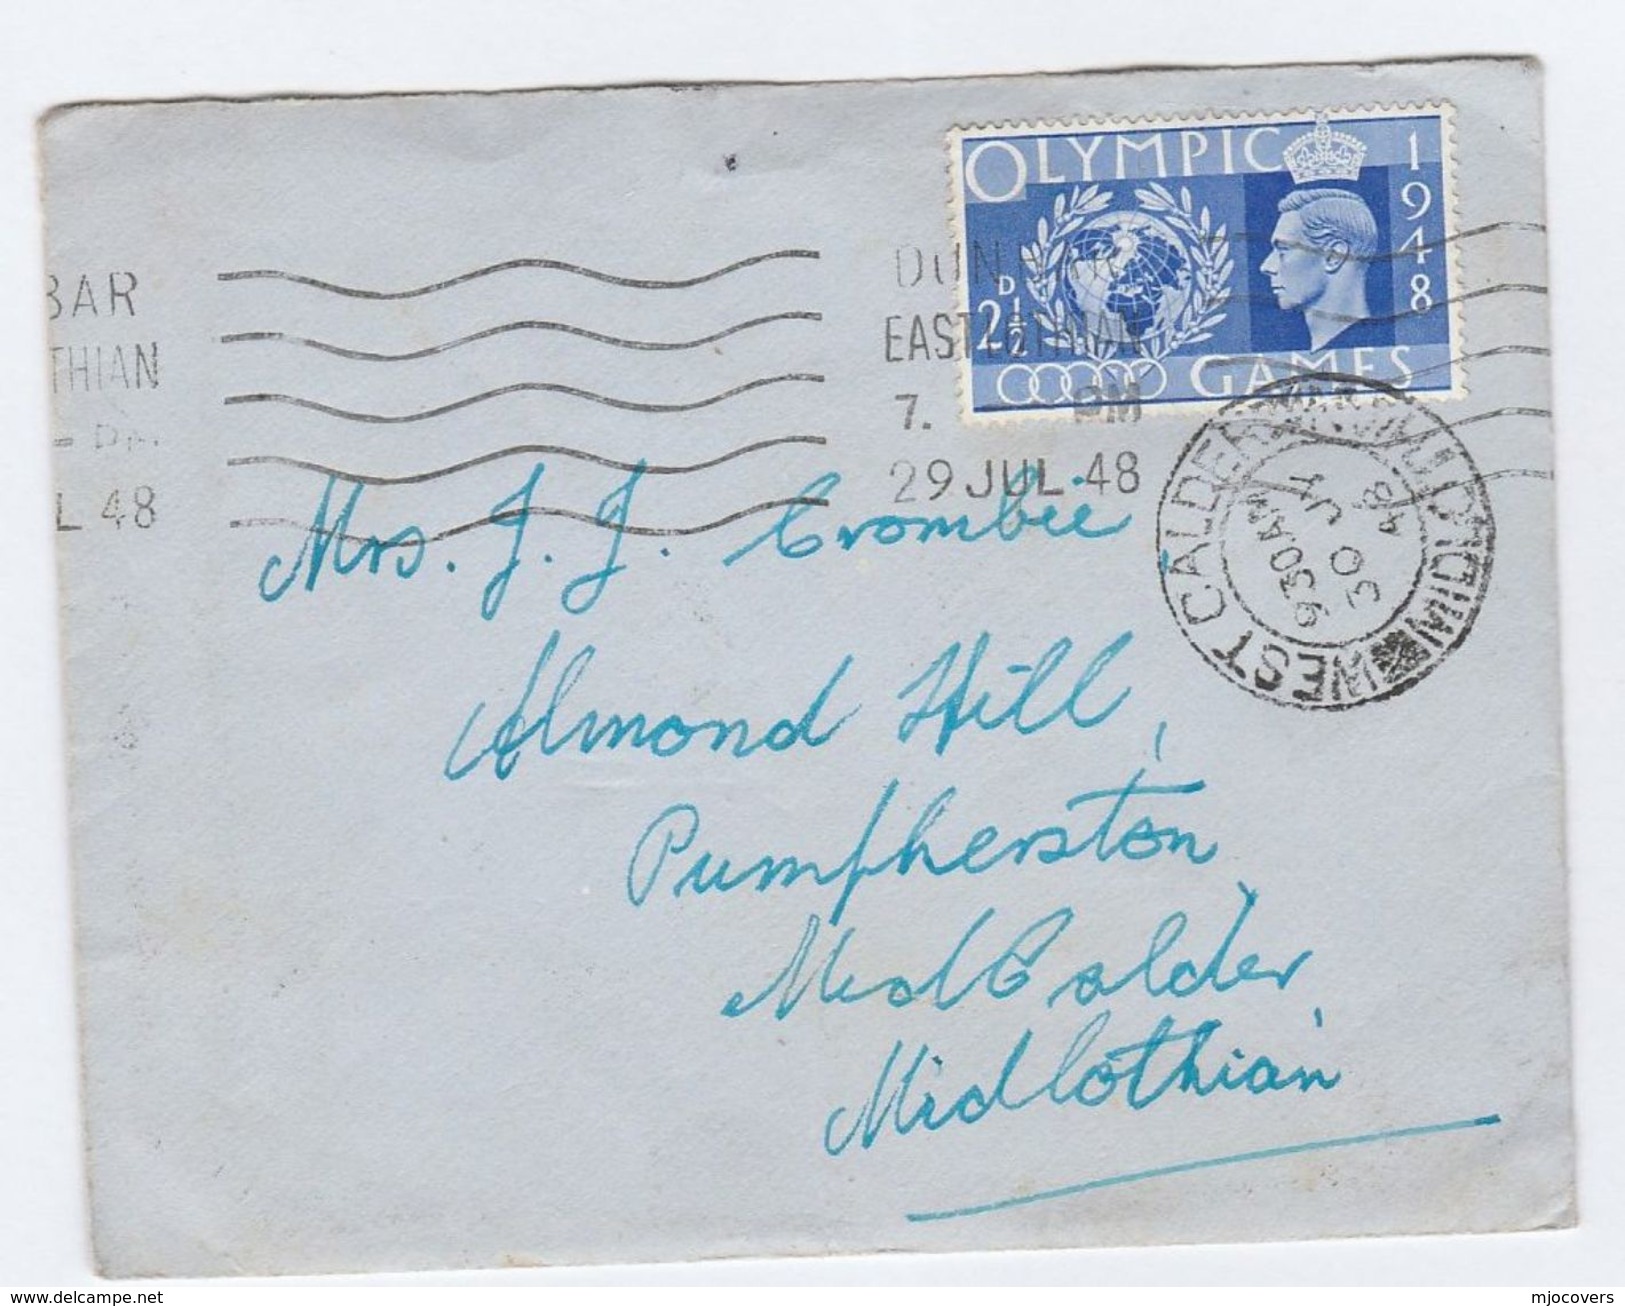 OLYMPIC
1948
2½D
GAMES
BAR
THIAN
L 48
EAST LOTHIAN
7. PM
29 JUL 48
WEST CALDER
MIDLOTHIAN
930AM
30 JY
48
Mrs. J. J. Crombie,
Almond Hill,
Pumpherston,
Mid Calder,
Midlothian
www.delcampe.net
mjocovers